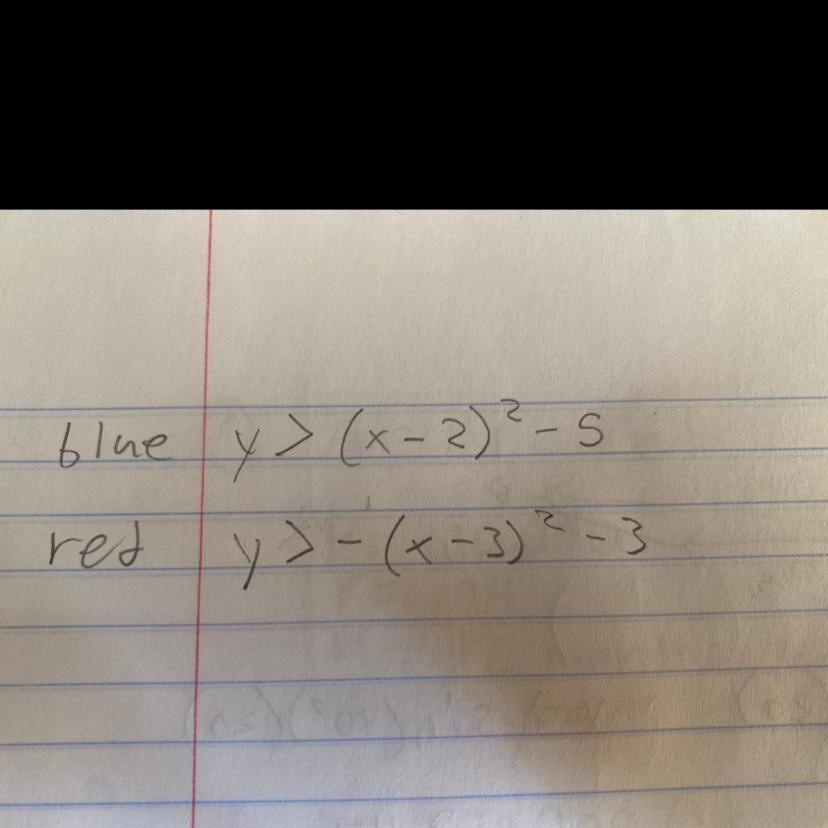 blue y > (x - 2)² - 5
red y > - (x - 3)² - 3